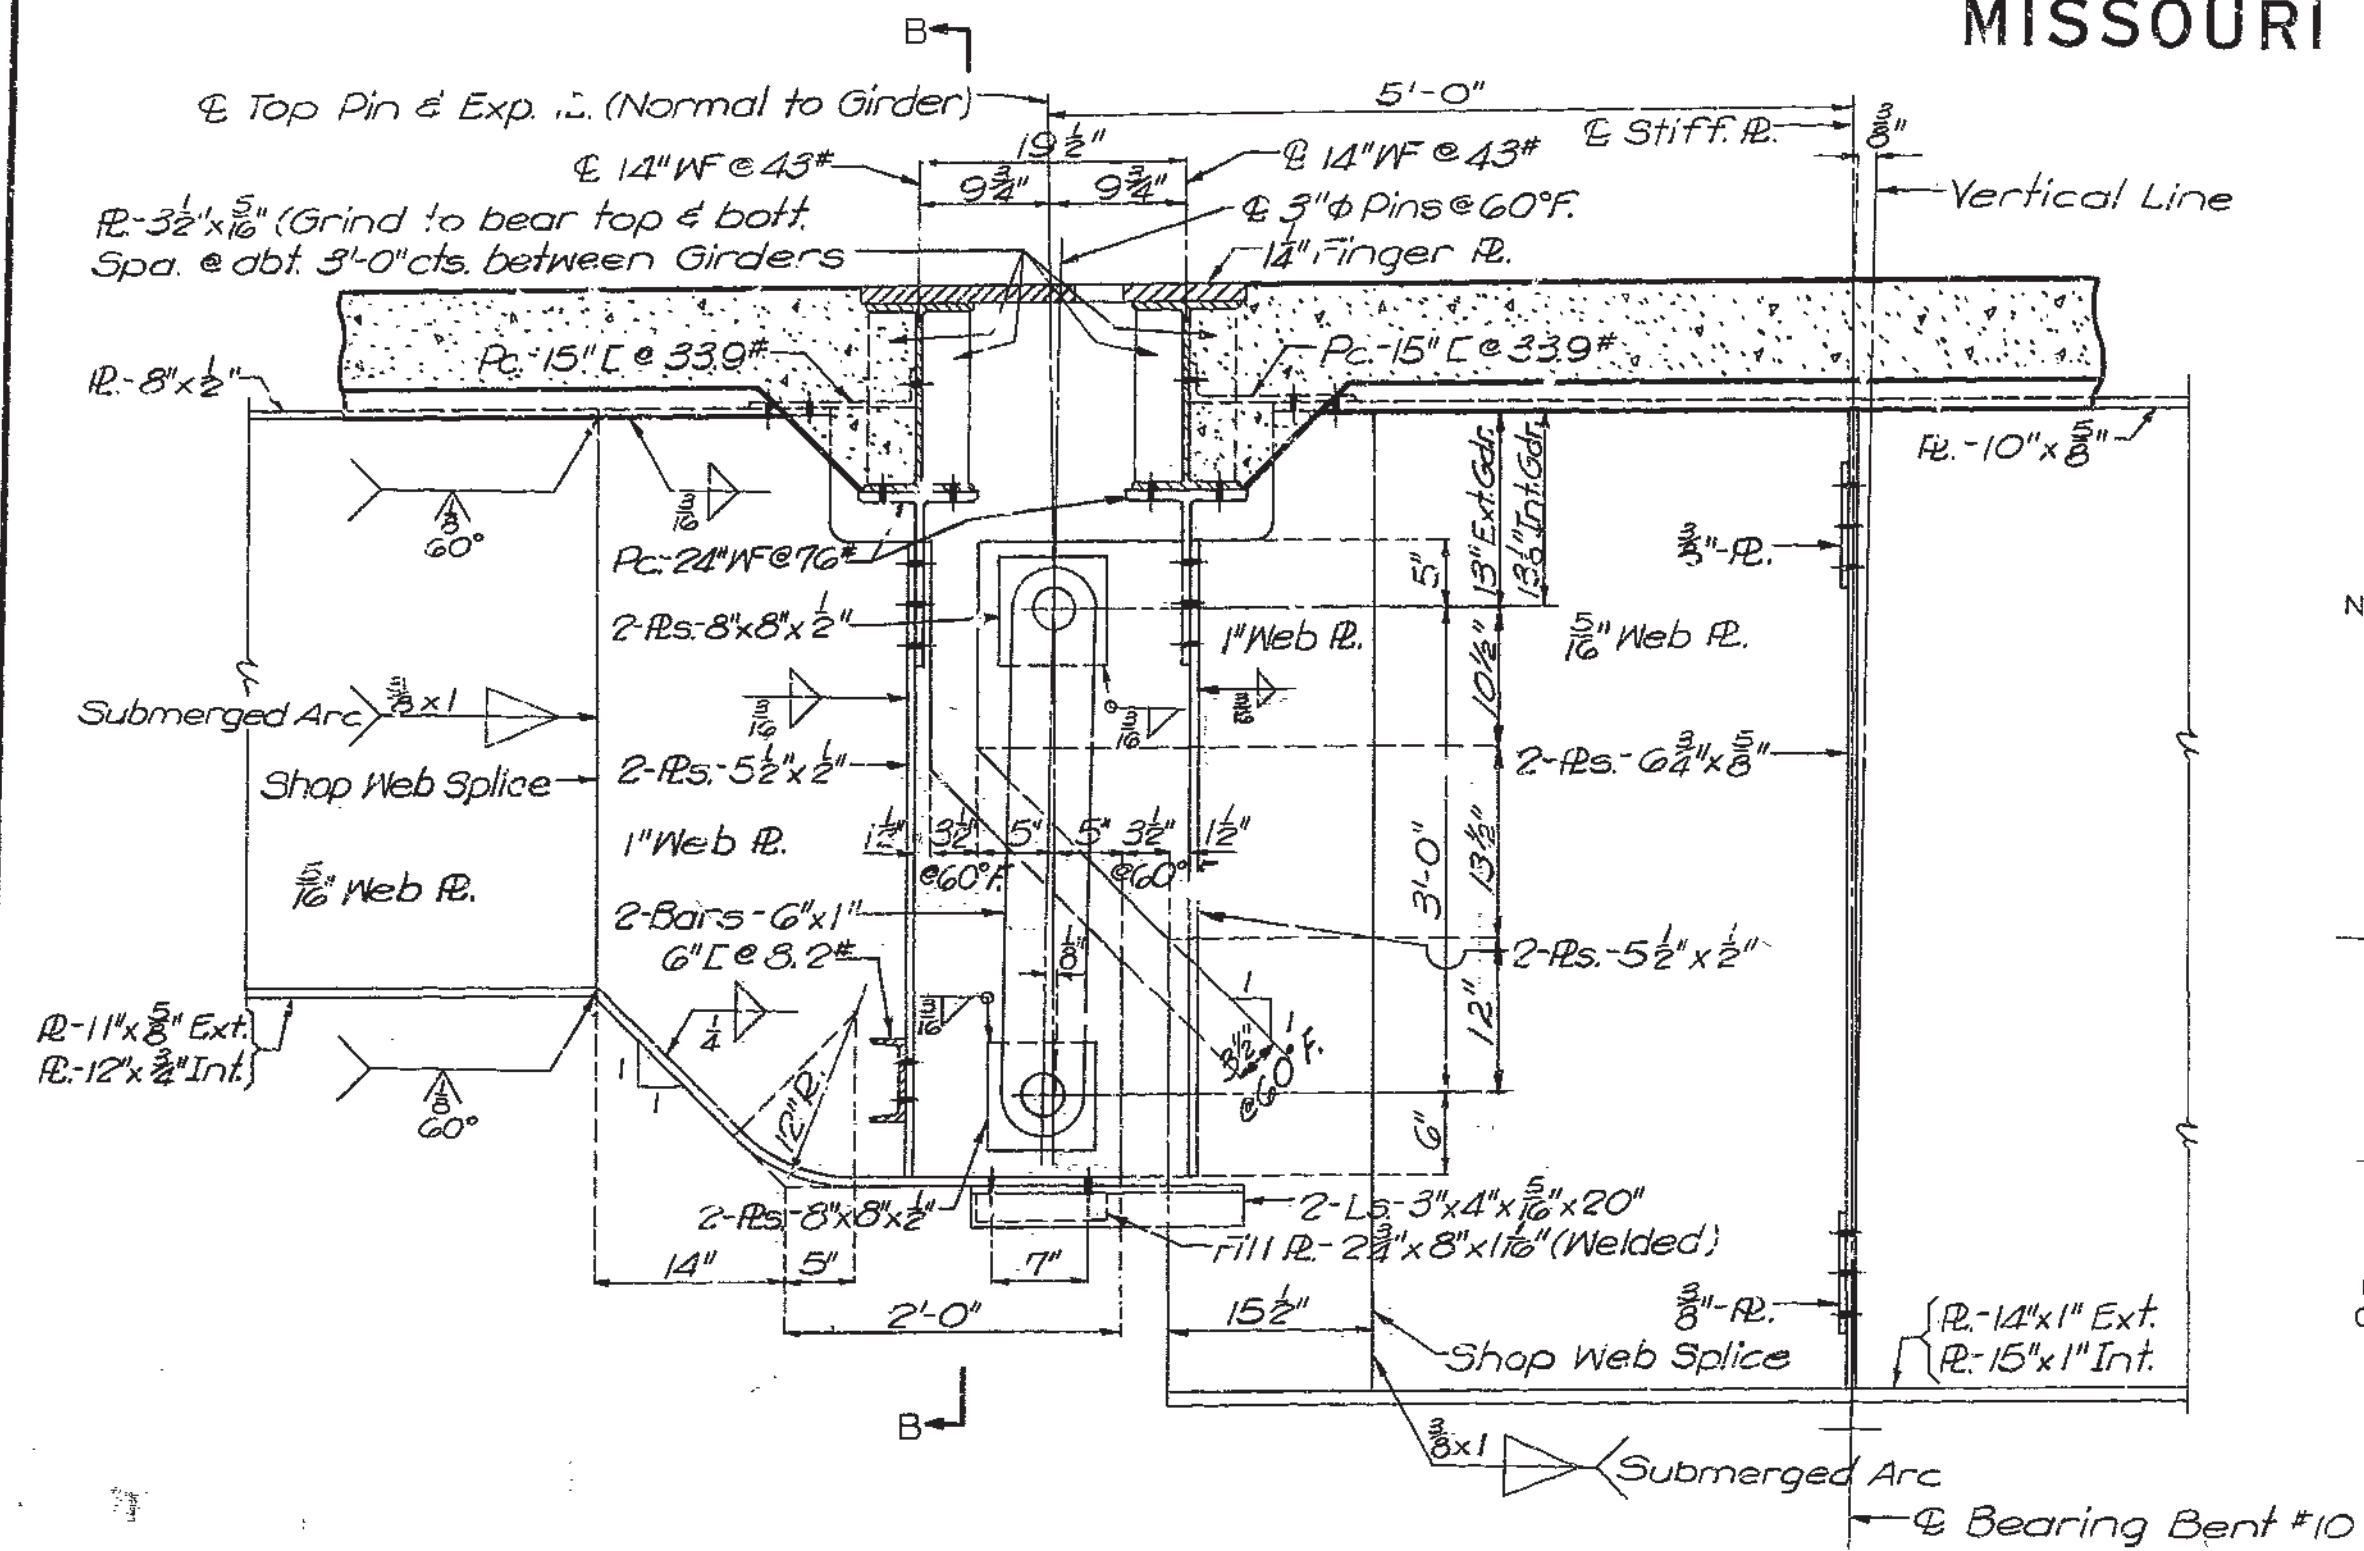 MISSOURI
B
℄ Top Pin & Exp. (Normal to Girder)
5'-0"
℄ Stiff. ℞.
3/8"
19 1/2"
℄ 14" WF @ 43#
℄ 14" WF @ 43#
9 3/4"
9 3/4"
Vertical Line
℄ 3"φ Pins @ 60°F.
℞-3 1/2"x 5/16" (Grind to bear top & bott.
Spa. @ abt. 3'-0" cts. between Girders
1 1/4" Finger ℞.
Pc.-15" [ @ 33.9#
Pc.-15" [ @ 33.9#
℞.-8"x 1/2"
℞.-10"x 5/8"
1/8
60°
3/16
Pc.-24" WF @ 76#
5"
13" Ext. Gdr.
13 1/8" Int. Gdr.
3/8"-℞.
2-℞s.-8"x8"x 1/2"
1" Web ℞.
5/16" Web ℞.
10 1/2"
Submerged Arc
3/8 x 1
3/16
3/16
3/16
2-℞s.-5 1/2"x 1/2"
2-℞s.-6 3/4"x 5/8"
Shop Web Splice
1" Web ℞.
1 1/2"
3 1/2"
5"
5"
3 1/2"
1 1/2"
@60°F.
@60°
3'-0"
13 1/2"
5/16" Web ℞.
2-Bars-6"x1"
1/8"
6" [ @ 8.2#
2-℞s.-5 1/2"x 1/2"
3/16
12"
1
1
3 1/2"
@60°F.
℞-11"x 5/8" Ext.
℞.-12"x 3/4" Int.
1/4
1
1
12" R.
1/8
60°
6"
2-℞s.-8"x8"x 1/2"
2-Ls-3"x4"x 5/16"x20"
Fill ℞.-2 3/4"x8"x1 1/16" (Welded)
14"
5"
7"
2'-0"
15 1/2"
3/8"-℞.
℞.-14"x1" Ext.
℞.-15"x1" Int.
Shop Web Splice
B
3/8 x 1
Submerged Arc
℄ Bearing Bent #10